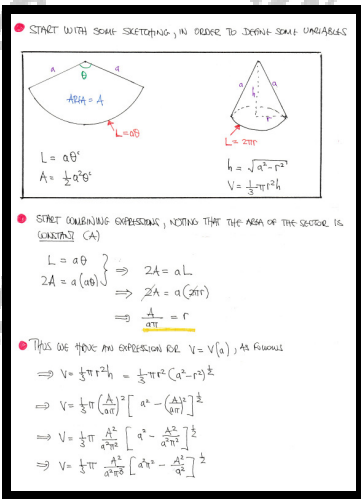 START WITH SOME SKETCHING, IN ORDER TO DEFINE SOME VARIABLES
a θ a
AREA = A
L = aθ
a h a
r
L = 2πr
L = aθᶜ
A = ½a²θᶜ
h = √(a² - r²)
V = ⅓πr²h
START COMBINING EXPRESSIONS, NOTING THAT THE AREA OF THE SECTOR IS
CONSTANT (A)
L = aθ
2A = a(aθ)
} ⇒ 2A = aL
⇒ 2A = a(2πr)
⇒ A/(aπ) = r
THUS WE HAVE AN EXPRESSION FOR V = V(a), AS FOLLOWS
⇒ V = ⅓πr²h = ⅓πr²(a² - r²)^½
⇒ V = ⅓π(A/(aπ))²[a² - (A/(aπ))²]^½
⇒ V = ⅓π A²/(a²π²) [a² - A²/(a²π²)]^½
⇒ V = ⅓π A²/(a²π³) [a²π² - A²/a²]^½